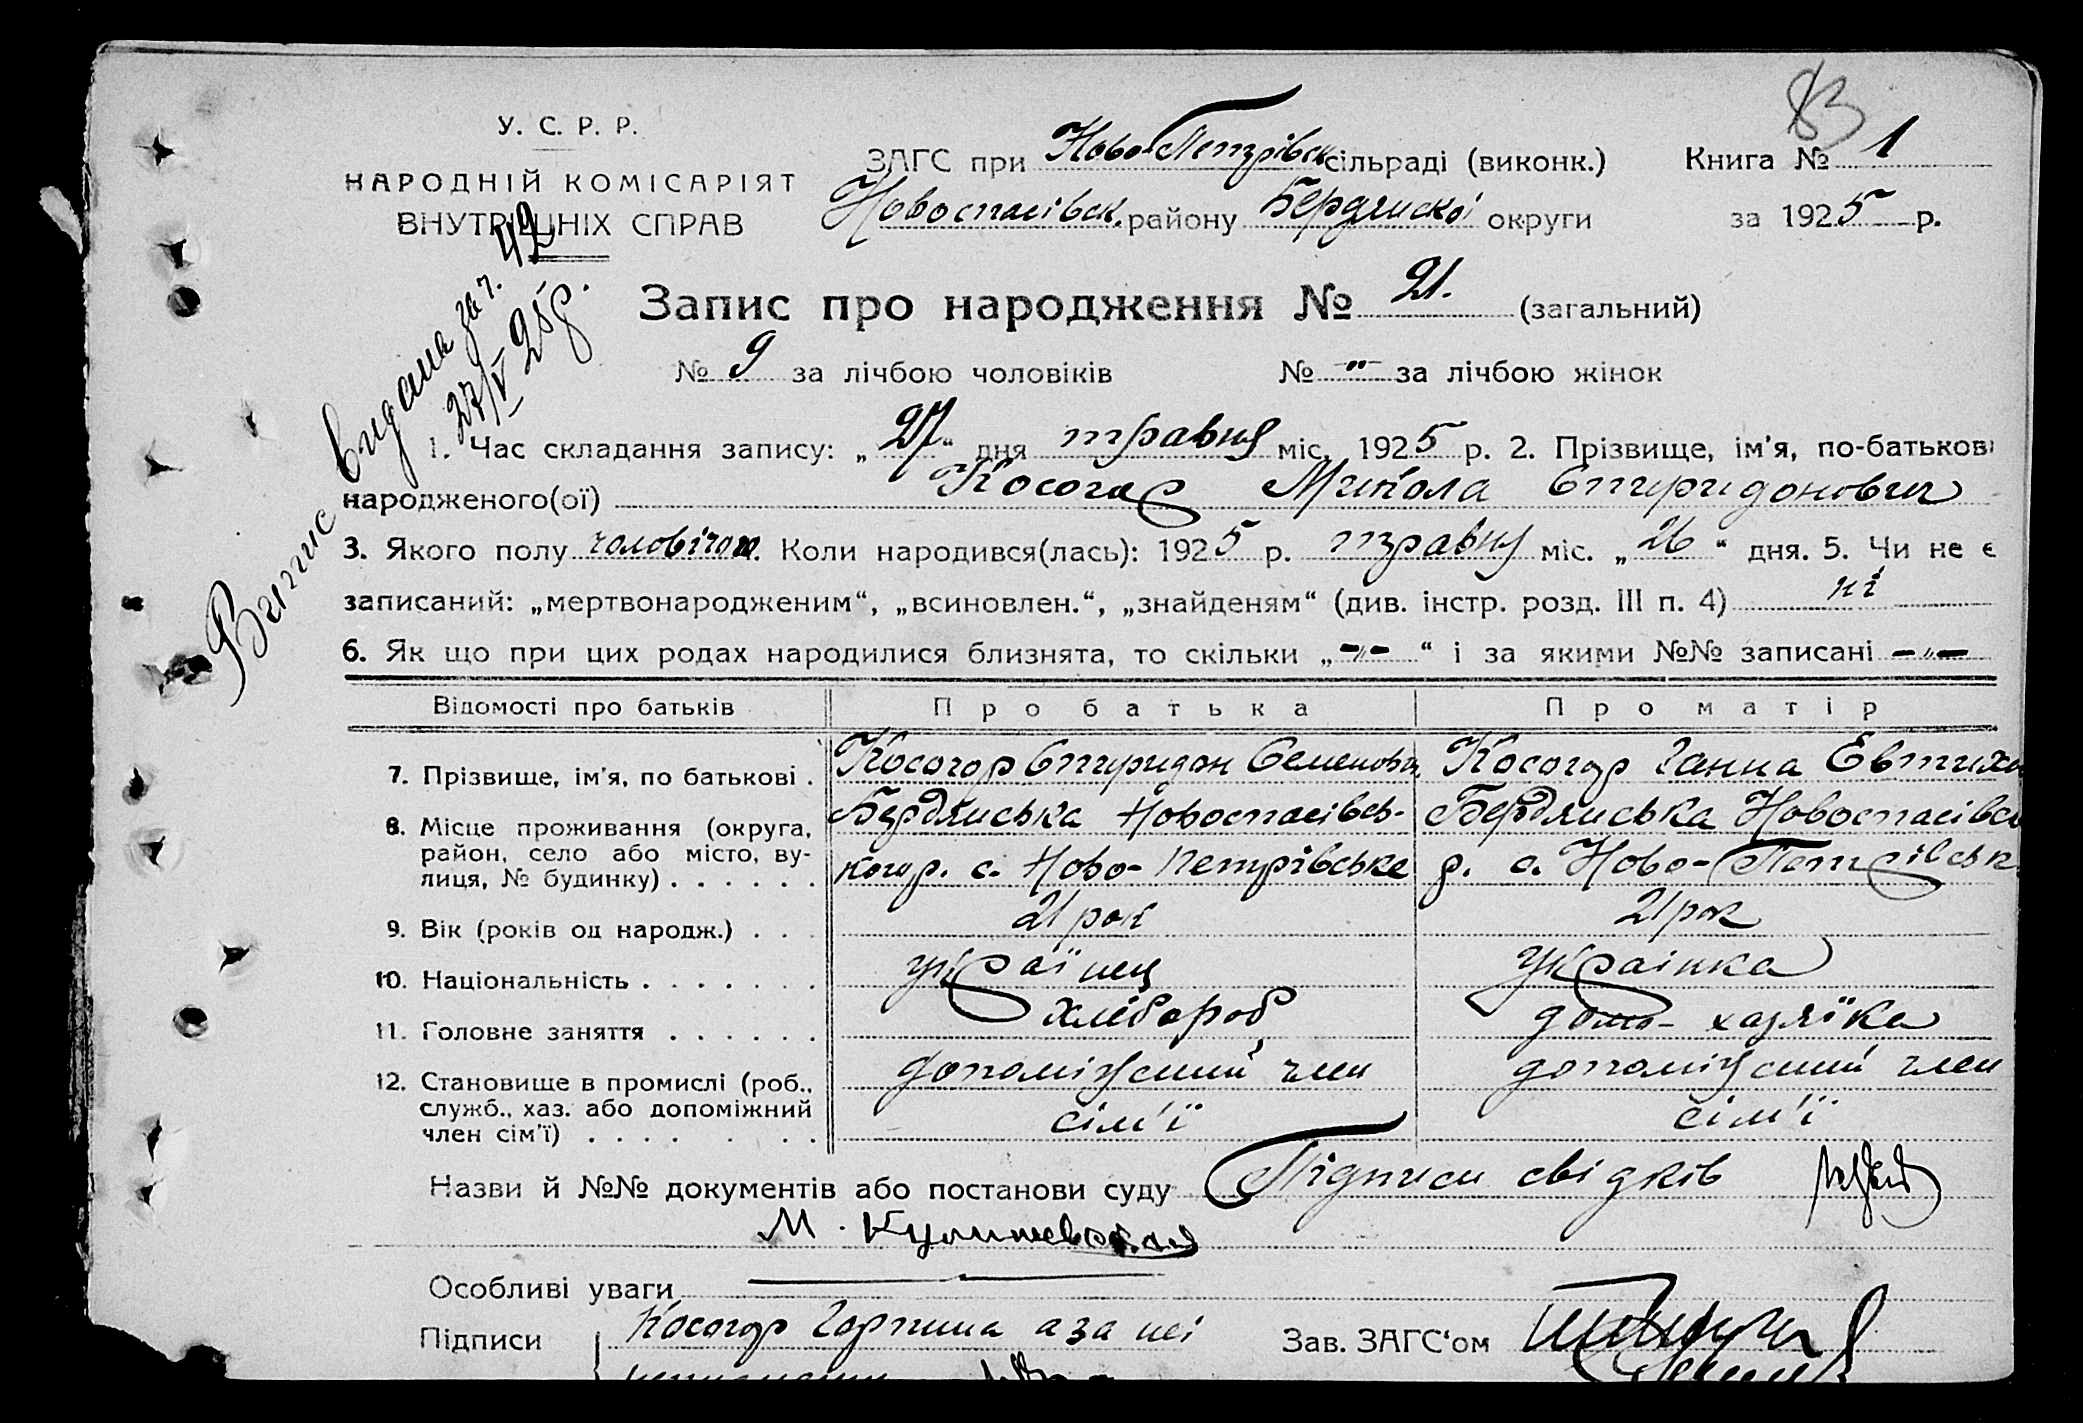 83
У. С. Р. Р.
НАРОДНІЙ КОМІСАРІЯТ
ВНУТРІШНІХ СПРАВ
ЗАГС при Ново-Петрівськ сільраді (виконк.) Книга № 1
Новоспасівськ. району Бердянської округи за 1925 р.
Випис видана за ч. 42
27/V 25р.
Запис про народження № 21. (загальний)
№ 9 за лічбою чоловіків № -"- за лічбою жінок
1. Час складання запису: „27" дня травня міс. 1925 р. 2. Прізвище, ім'я, по-батькові
народженого(ої) Косогор Микола Спиридонович
3. Якого полу чоловічого. Коли народився(лась): 1925 р. травня міс. „26" дня. 5. Чи не є
записаний: „мертвонародженим", „всиновлен.", „знайденям" (див. інстр. розд. III п. 4) ні
6. Як що при цих родах народилися близнята, то скільки „-"-" і за якими №№ записані -"-
Відомості про батьків Про батька Про матір
7. Прізвище, ім'я, по батькові . Косогор Спиридон Семенович Косогор Ганна Евтихо
8. Місце проживання (округа, район, село або місто, вулиця, № будинку) . . . . . . Бердянська Новоспасівсь-
кого р. с. Ново-Петрівське Бердянська Новоспасівськ
р. с. Ново-Петрівськ
9. Вік (років од народж.) . . . 21 рок 21 рок
10. Національність . . . . . . . українець українка
11. Головне заняття . . . . . . хлібороб домо-хазяїка
12. Становище в промислі (роб., служб., хаз. або допоміжний член сім'ї) . . . . . . . допоміжний член
сім'ї допоміжний член
сім'ї
Назви й №№ документів або постанови суду Підписи свідків
М. Кулишевская
Особливі уваги
Підписи Косогор Горпина а за неі Зав. ЗАГС'ом